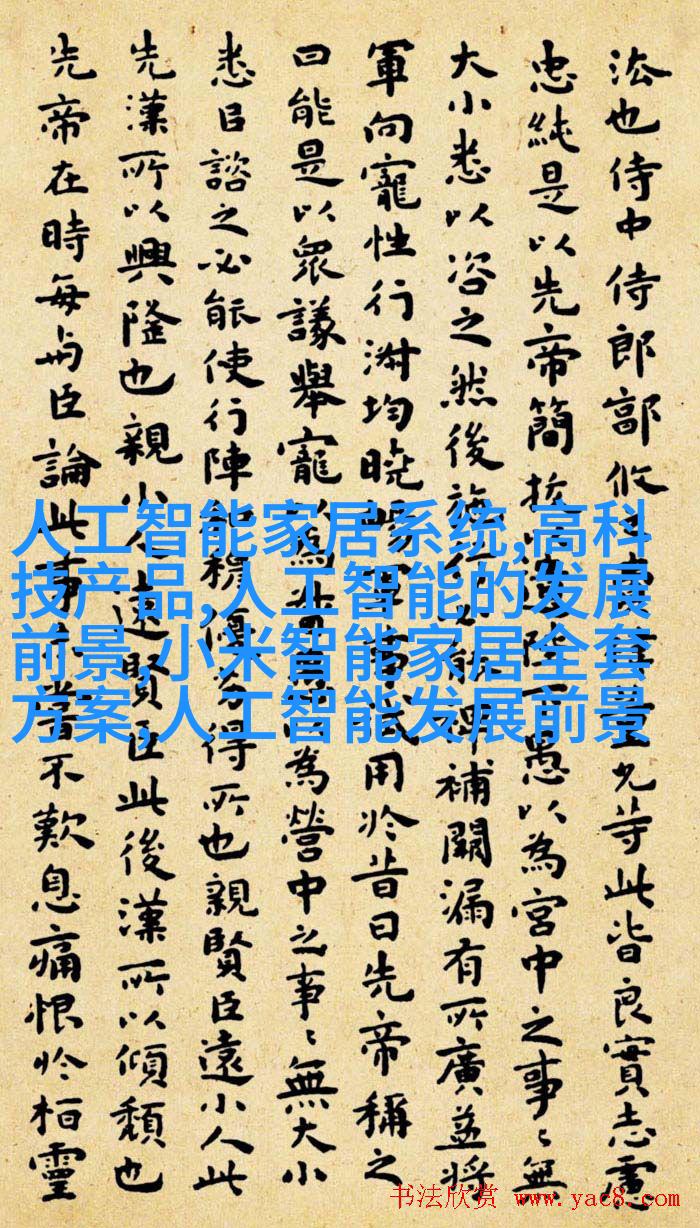 法也侍中侍郎郭攸之費禕董允等此皆良實志慮
忠純是以先帝簡拔以遺陛下愚以為宮中之事〻無
大小悉以咨之然後施行必能裨補闕漏有所廣益將
軍向寵性行淑均曉暢軍事試用於昔日先帝稱之
曰能是以眾議舉寵以為督愚以為營中之事〻無大小
悉以諮之必能使行陣和穆優劣得所也親賢臣遠小人此
先漢所以興隆也親小人遠賢臣此後漢所以傾頹也
先帝在時每與臣論此事未嘗不歎息痛恨於桓靈
人工智能家居系统,高科
技产品,人工智能的发展
前景,小米智能家居全套
方案,人工智能发展前景
书法欣赏 www.yac8.com